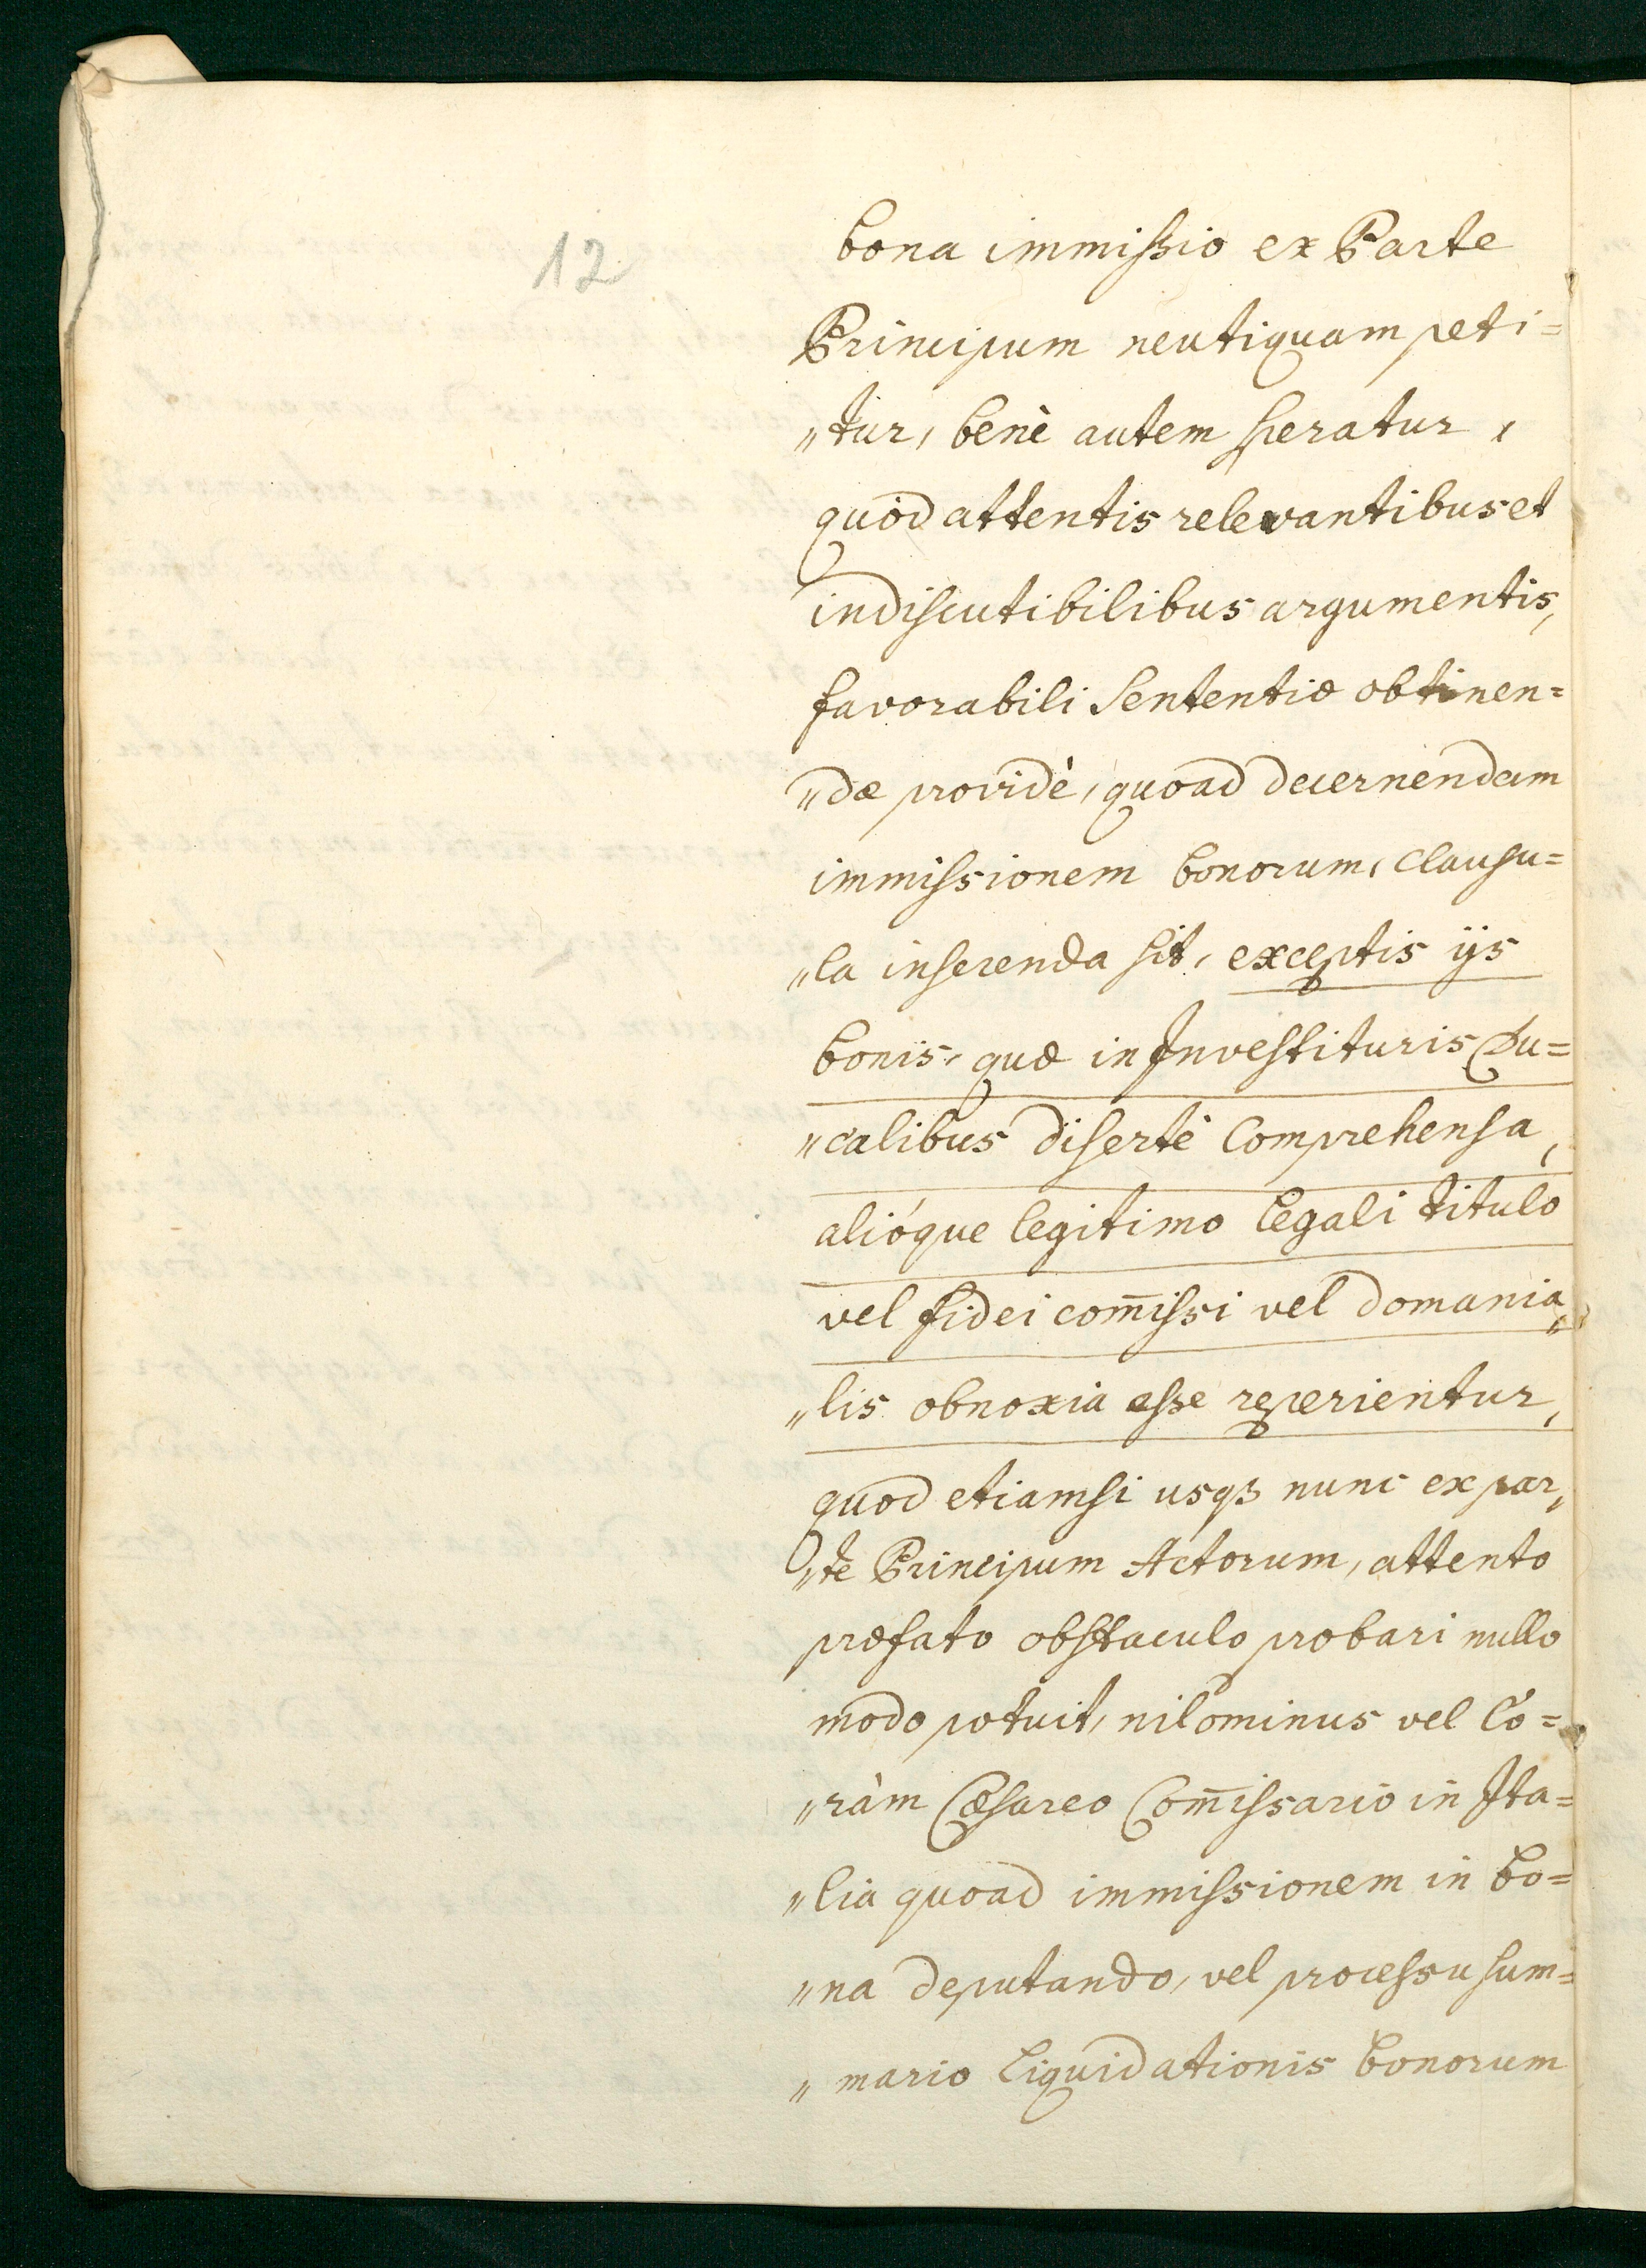 12
bona immissio ex Parte
Principum neutiquam peti=
„tur, benè autem speratur,
quòd attentis relevantibus et
indiscutibilibus argumentis,
favorabili Sententiæ obtinen=
„dæ providè, quoad decernendam
immissionem bonorum, clausu=
„la inserenda sit, exceptis ijs
bonis, quæ in Investituris Du=
„calibus disertè Comprehensa,
alióque legitimo legali titulo
vel fidei com̄issi vel domania„
„lis obnoxia esse reperientur,
quod etiamsi usqꝫ nunc ex par„
„te Principum Actorum, attento
præfato obstaculo probari nullo
modo potuit, nilominus vel Co=
„ràm Cæsareo Com̄issario in Ita=
„lia quoad immissionem in bo=
„na deputando, vel processu sum=
„mario liquidationis bonorum